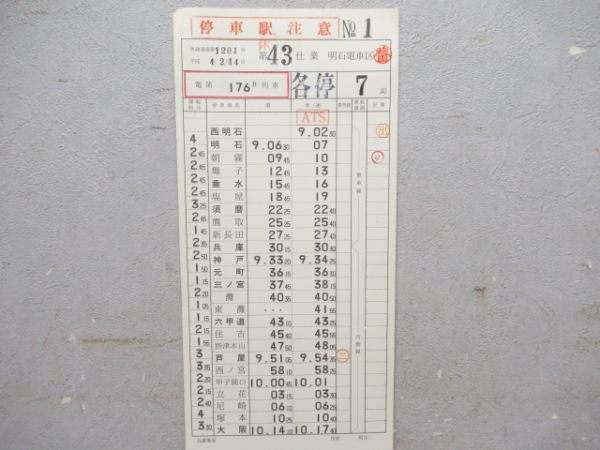 停車駅注意 No. 1
休
第43仕業 明石電車区
1201
平成 4 2/14
電第 176 B 列車 各停 7両
運転時分 停車場名 着 発(通) 着発線 記事
ATS
西明石 9.02 30
4 明石 9.06 30 07 出
2 45 朝霧 09 45 10
2 45 舞子 12 45 13
2 45 垂水 15 45 16
2 45 塩屋 18 45 19
3 25 須磨 22 25 22 40
2 45 鷹取 25 25 25 40
1 45 新長田 27 25 27 40
2 50 兵庫 30 15 30 30
2 50 神戸 9.33 20 9.34 25
1 50 元町 36 15 36 30
1 15 三ノ宮 37 45 38 15
2 20 灘 40 35 40 50
1 05 東灘 ・・・ 41 55
1 15 六甲道 43 10 43 25
2 15 住吉 45 40 45 55
1 55 摂津本山 47 50 48 05
3 芦屋 9.51 05 9.54 35 二
3 50 西ノ宮 58 10 58 25
2 20 甲子園口 10.00 45 10.01
2 15 立花 03 15 03 30
2 40 尼崎 06 10 06 25
4 塚本 10 25 10 40
3 30 大阪 10.14 10 10.17 40
電車線
内側線